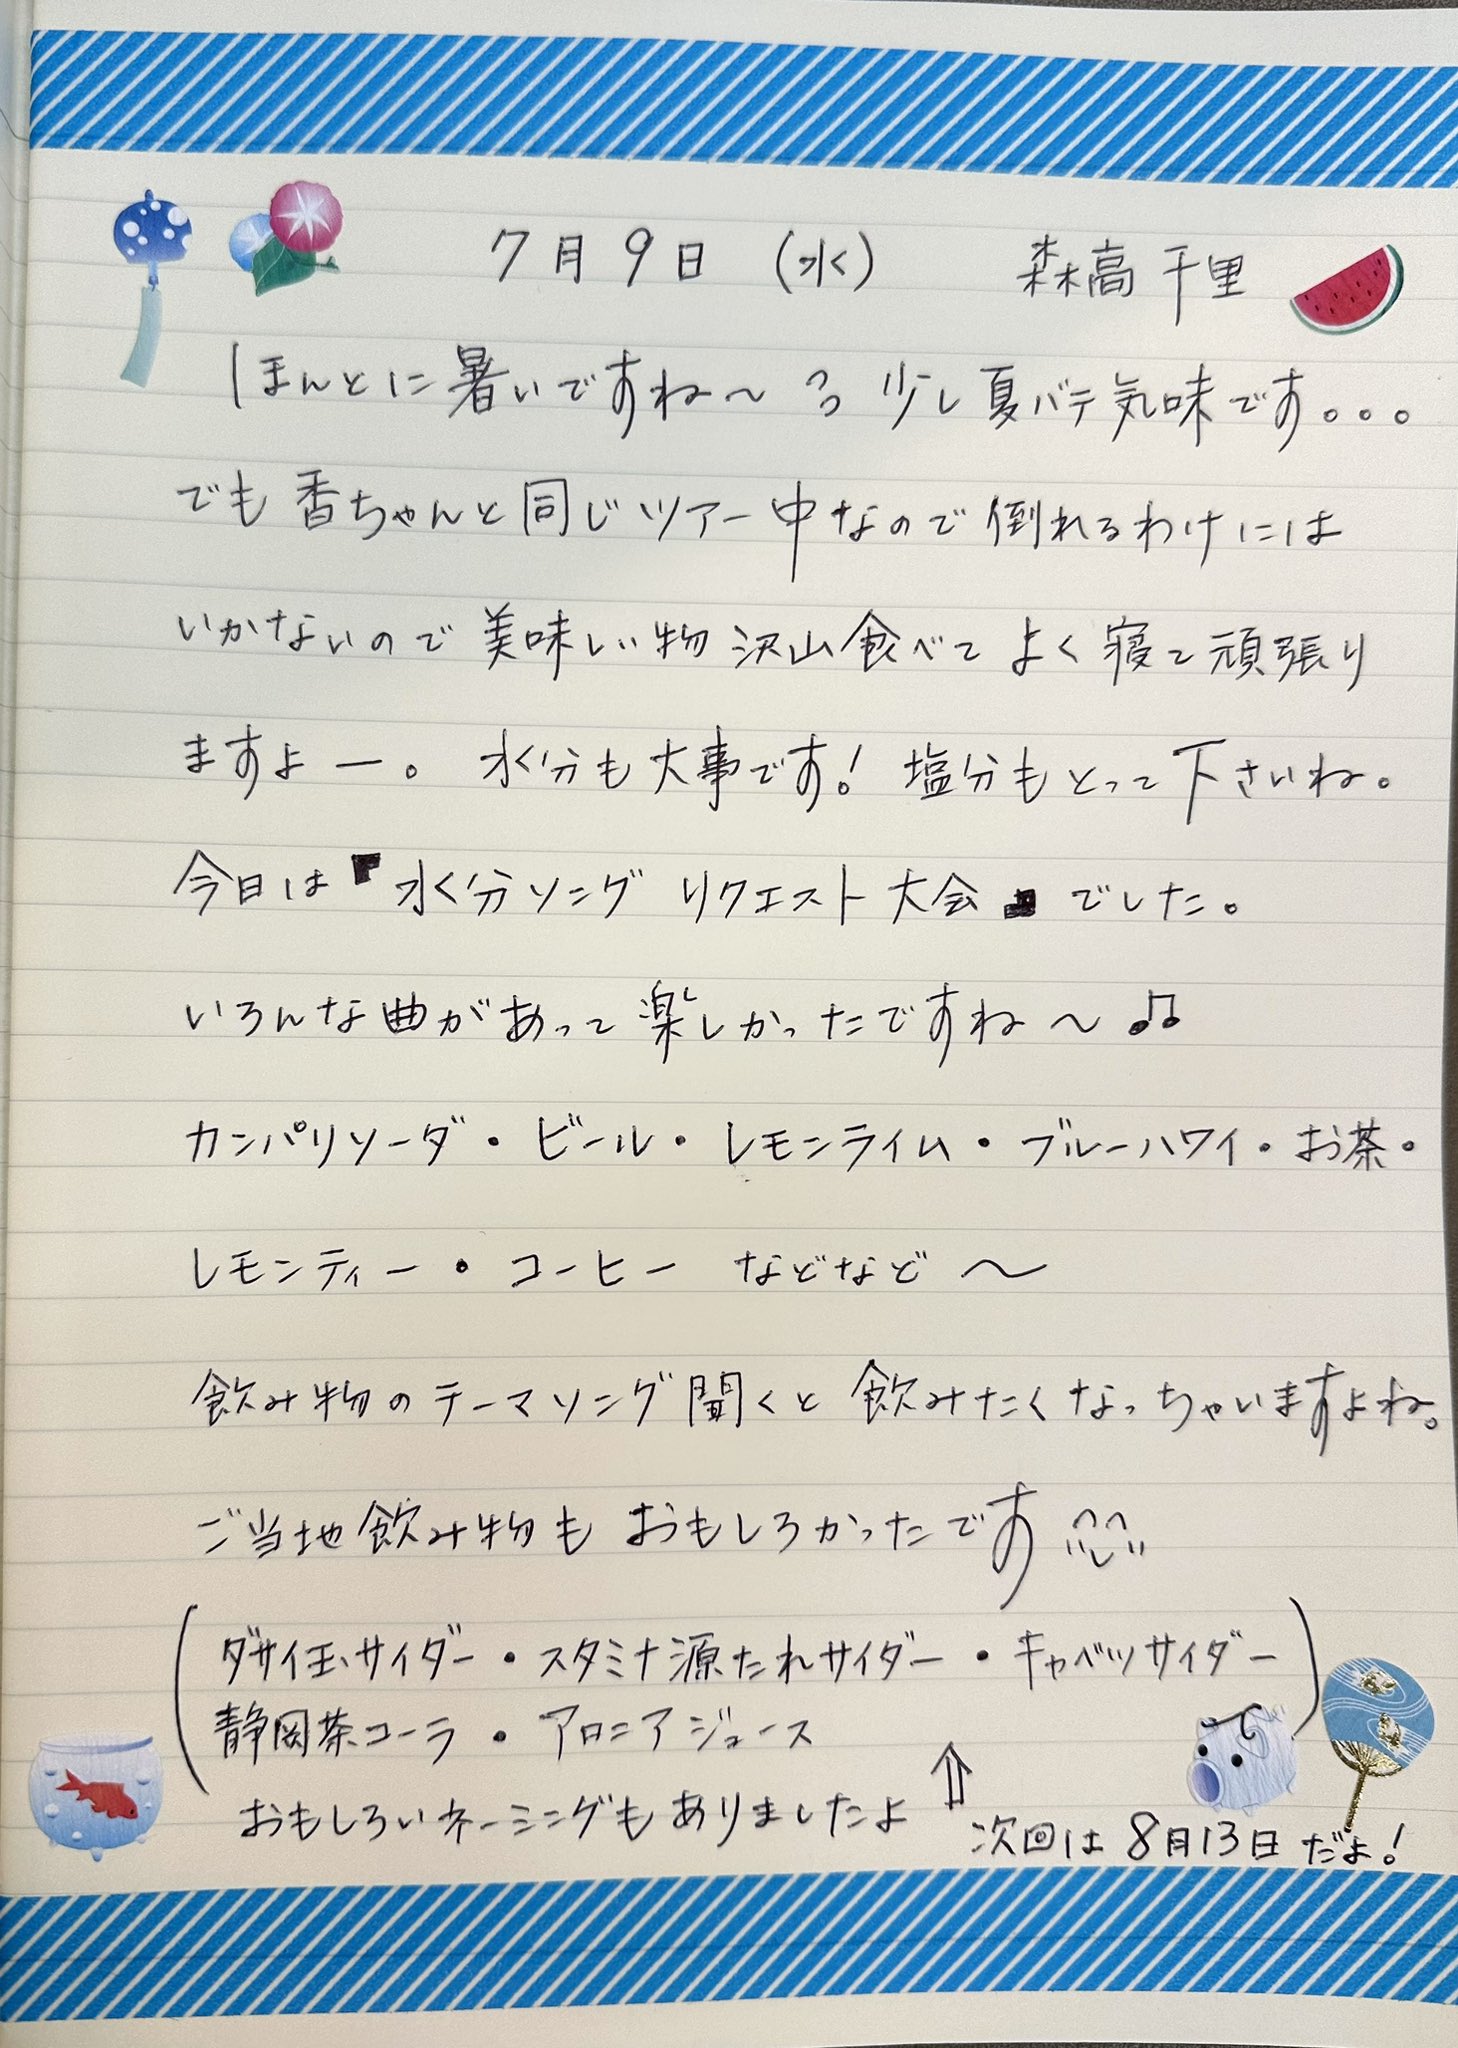 7月9日(水) 森高千里
ほんとに暑いですね〜 少し夏バテ気味です。。。
でも香ちゃんと同じツアー中なので倒れるわけには
いかないので美味しい物沢山食べてよく寝て頑張り
ますよー。水分も大事です!塩分もとって下さいね。
今日は『水分ソングリクエスト大会』でした。
いろんな曲があって楽しかったですね〜♫
カンパリソーダ・ビール・レモンライム・ブルーハワイ・お茶・
レモンティー・コーヒー などなど〜
飲み物のテーマソング聞くと飲みたくなっちゃいますよね。
ご当地飲み物もおもしろかったです
(ダサイ玉サイダー・スタミナ源たれサイダー・キャベツサイダー
静岡茶コーラ・アロニアジュース)
おもしろいネーミングもありましたよ⇧
次回は8月13日だよ!